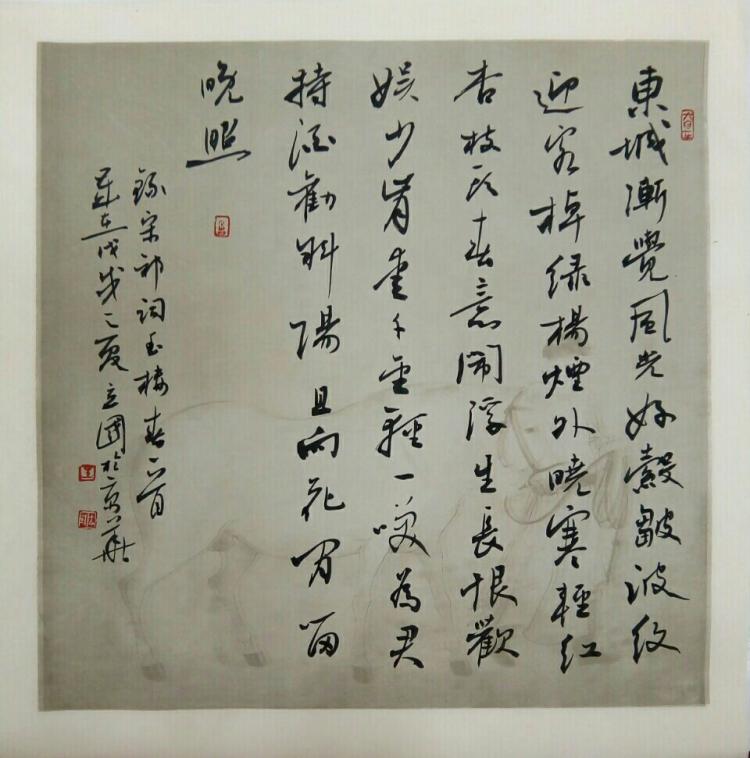 東城漸覺風光好縠皺波紋
迎客棹綠楊煙外曉寒輕紅
杏枝頭春意鬧浮生長恨歡
娛少肯愛千金輕一笑為君
持酒勸斜陽且向花間留
晚照
錄宋祁詞玉樓春一首
歲在戊戌之夏立國於京華